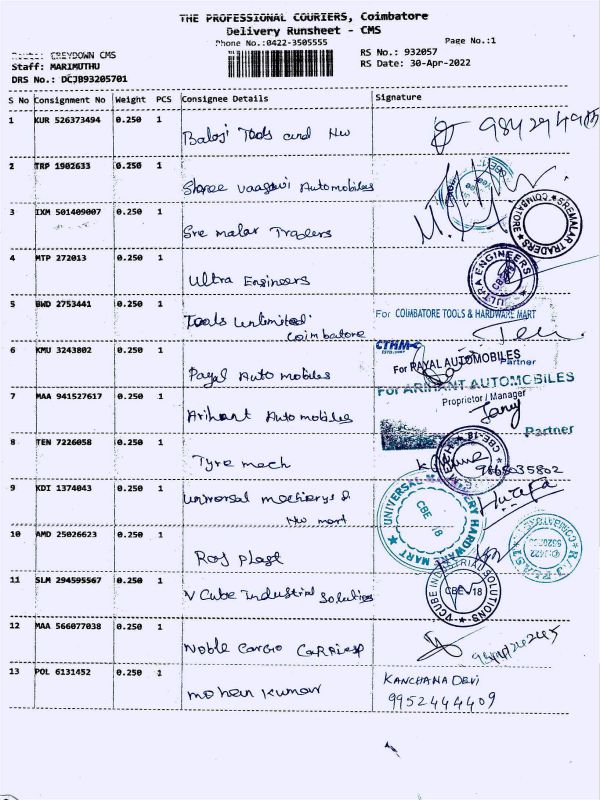 THE PROFESSIONAL COURIERS, Coimbatore
Delivery Runsheet - CMS
Phone No.:0422-3505555
Page No.:1
CREYDOWN CMS
RS No.: 932057
Staff: MARIMUTHU
RS Date: 30-Apr-2022
DRS No.: DCJB93205701
S No Consignment No Weight PCS Consignee Details Signature
1 KUR 526373494 0.250 1 Balaji Tools and Hw
2 TRP 1902633 0.250 1 Shree Vaagavi Automobiles
3 IXM 501409007 0.250 1 Sre malar Traders
SREMALAR TRADERS COIMBATORE
4 MTP 272013 0.250 1 Ultra Engineers
ULTRA ENGINEERS
5 BWD 2753441 0.250 1 Tools Unlimited
Coimbatore
For COIMBATORE TOOLS & HARDWARE MART
CTHM
6 KMU 3243802 0.250 1 Payal Automobiles
For PAYAL AUTOMOBILES
Partner
7 MAA 941527617 0.250 1 Arihant Automobiles
For ARIHANT AUTOMOBILES
Proprietor / Manager
Partner
8 TEN 7226058 0.250 1 Tyre mech
CBE-18
9 KDI 1374043 0.250 1 universal machierys &
Hw mart
UNIVERSAL MACHINERY HARDWARE MART
CBE 18
10 AMD 25026623 0.250 1 Roj plast
11 SLM 294595567 0.250 1 V Cube Industrial Solutions
VCUBE INDUSTRIAL SOLUTIONS
CBE 18
12 MAA 566077038 0.250 1 Noble Cargo Carrier
13 POL 6131452 0.250 1 mohan kumar
KANCHANA DEVI
9952444409